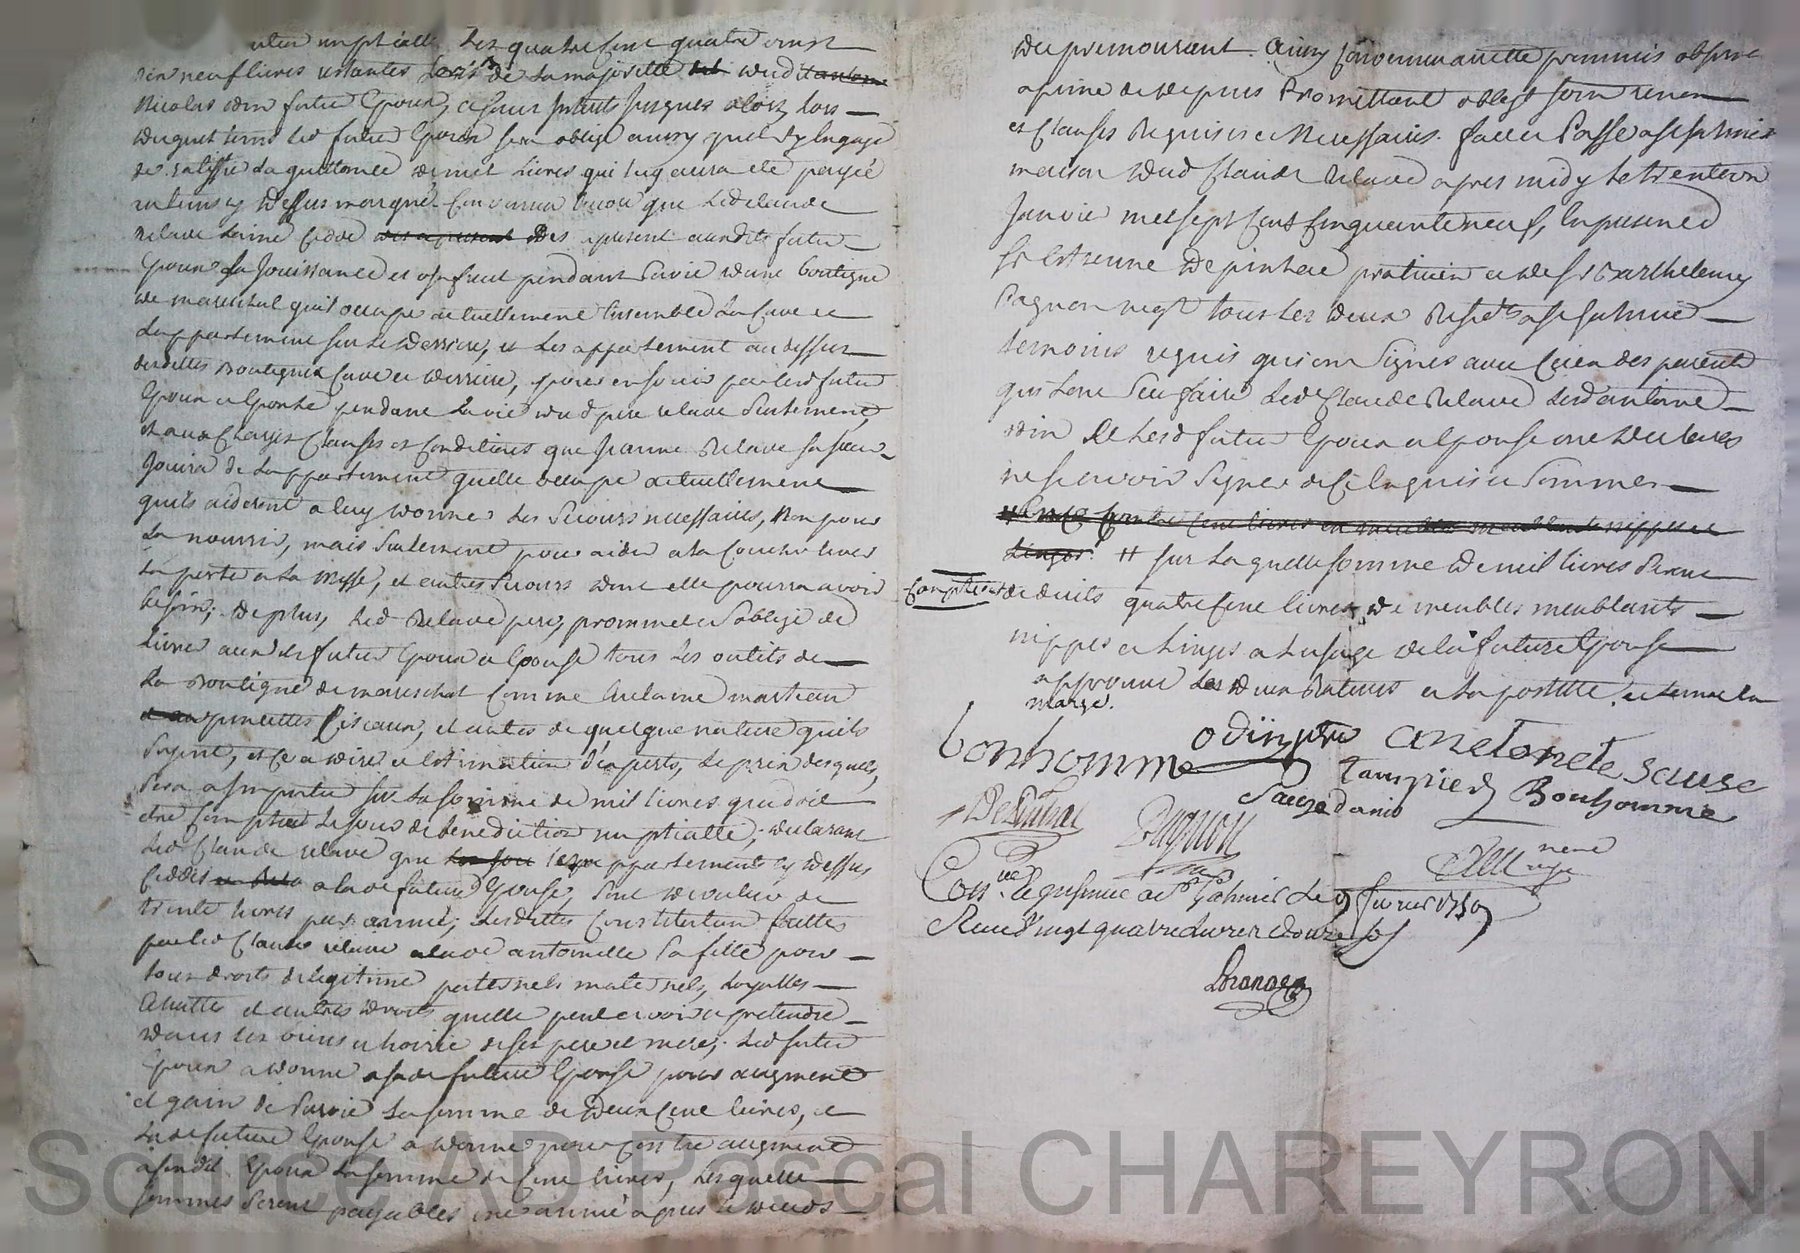 nuptialle Les quatre cent quatre vingt
dix neuf livres restantes de la majorité dud
Nicolas odin futur Epoux, ce jusques alors, lors
duquel tems led futur Epoux sera oblige aussy quil sy engage
de la quittance de mil livres qui luy aura ete payée
en tems cy dessus marqué Convenu encore que led Claude
Relave cede des apresent des apresent auxdits futur
Epoux la Jouissance et usufruit pendant sa vie dune boutique
de marechal quil occupe actuellement Ensemble La Cave et
Lappartement sur le Derriere, et Les appartement au dessus
desdittes Boutique Cave et derriere, pour en jouir par lesd futur
Epoux et Epouse pendant la vie dud pere relave Seulement,
et aux Charges Clauses et Conditions que Jeanne Relave sa sœur
Jouira de Lappartement quelle occupe actuellement
quils aideront a luy donner les Secours necessaires, Non pour
La nourrir, mais Seulement pour aider a la Coucher lever
La porter a La Messe, et autres Secours dont elle pourra avoir
besoin; De plus, Led Relave pere, promet et soblige de
Livrer auxd futur Epoux et Epouse tous les outils de
La Boutique de mareschal Comme Enclume marteau
pincettes Ciseaux, et autres de quelque nature quils
Soyent, et ce a dire et Estimation dexperts, Le prix desquels,
Sera a imputer sur La somme de mil livres qui doit
etre Comptee Le jour de benediction nuptialle; declarant
Led Claude relave que les appartements cy dessus
Ceddés a lade future Epouse, sont de valeur de
trente livres par année; Lesdittes Constitution faittes
par led Claude relave a lade antoinette sa fille pour
tous droits de legitime paternels maternels, Loyalles
Echuttes et autres droits quelle peut avoir et pretendre
dans les biens et hoirie de ses pere et mere; Led futur
Epoux a donné a sade future Epouse pour augment
et gain de Survie La somme de deux cent livres, et
Lade future Epouse a donné pour Contre augment
a sondit Epoux La somme de Cent livres, Lesquelles
sommes Seront payables une année apres le deceds
du premourant. Ainsy Convenu a tenir
a peine de depens Promettant oblig Soum renon
et Clauses Requises et Necessaires. fait et Passé a St galmier
maison dud Claude Relave apres midy Le trente un
Janvier mil sept Cent Cinquante neuf, En presence
Sr Estienne Depinhac praticien et de Sr Barthelemy
Pagnon negt tous les deux Residts a St Galmier
temoins requis qui ont Signes avec Ceux des parents
qui Lont Sceu faire Led Claude Relave Led antoine
odin et Lesd futur Epoux et Epouse ont declaré
ne scavoir Signer de ce Enquis et Sommes
Cent livres en meubles meublants nippes et
Linges. # sur Laquelle somme de mil livres Seront
Comprises
deduits quatre Cent livres de meubles meublants
nippes et Linges a Lusage de la future Epouse
approuvé les deux Ratures et La postille
marge.
bonhomme odin ptre anetonete sause
Sauzedanis Bonhomme
Pagnon
Con.lé a St Galmier Le 9 fevrier 1759
Reçu vingt quatre Livres douze sols
Source AD Pascal CHAREYRON